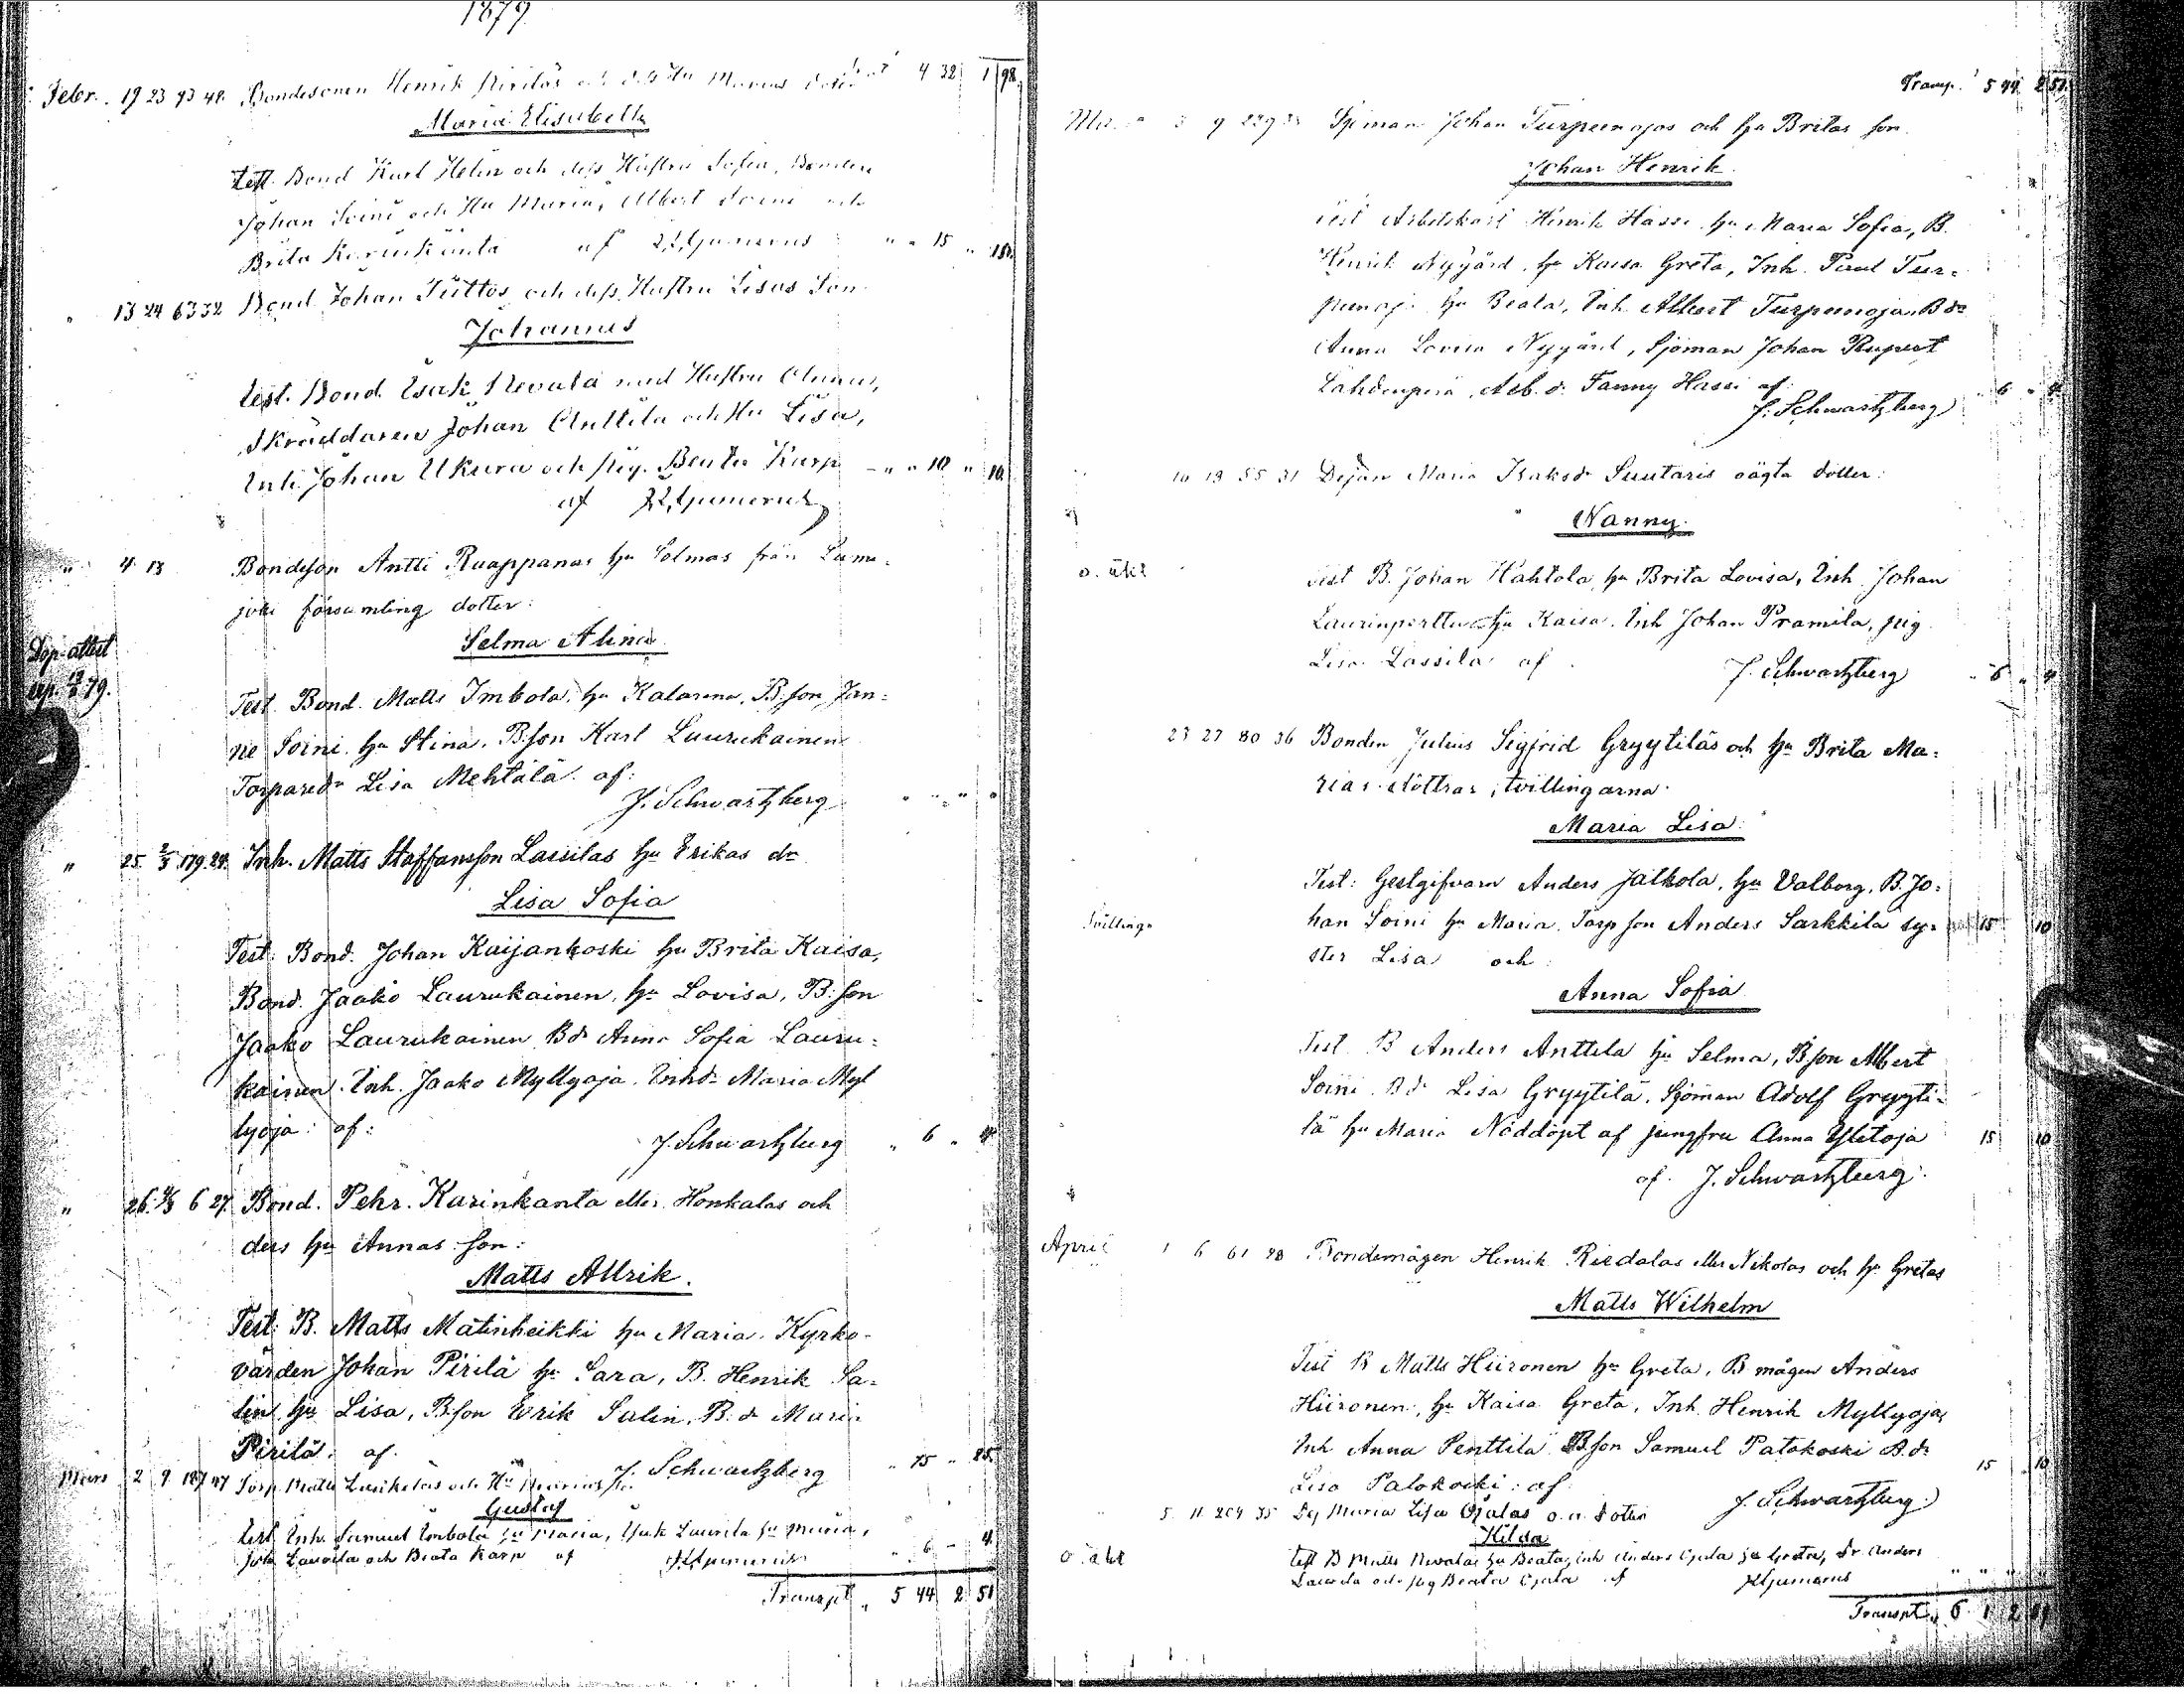 1879
Transpt 4 32 1 98.
Febr. 19 23 93 48. Bondesonen Henrik Pirilas och dess Hu Marias dotter
Maria Elisabeth
test. Bond Karl Helin och dess Hustru Sofia, Bonden
Johan Soini och Hu Maria, Albert Soini och
Brita Karinkanta af 15 15.
" 13 24 63 32 Bond. Johan Tuttos och dess Hustru Lisas Son
Johannes
test. Bond. Isak Nevala med Hustru Anna,
Skräddaren Johan Anttila och Hu Lisa,
Inh. Johan Ukura och pig. Beata Karp " 10 " 10.
af
" 4 13 Bondeson Antti Ruappanas hu Selmas från Lumi-
joki församling dotter:
Selma Alina
Döp-attest
exp. 79.
Test. Bond. Matts Imbola, hu Katarina, B.son Jan-
ne Soini. hu Stina. B.son Karl Laurukainen
Torpared. Lisa Mehtälä. af:
J. Schwartzberg
" 25. 2/3 179. 29. Inh. Matts Staffansson Lassilas hu Erikas dr
Lisa Sofia
Test: Bond. Johan Kaijankoski hu Brita Kaisa,
Bond. Jaako Laurukainen, hu Lovisa, B:son
Jaako Laurukainen Bdr Anna Sofia Lauru-
kainen. Inh. Jaako Myllyoja. Inhdr Maria Myl
lyoja: af:
J. Schwartzberg " 6 " 4
" 26. 9/3 6 27. Bond. Pehr. Karinkanta eller Honkalas och
ders hu Annas son:
Matts Alrik.
Test: B. Matts Matinheikki hu Maria. Kyrko-
värden Johan Pirilä hu Sara, B. Henrik Sa-
lin hu Lisa, B:son Erik Salin, B. dr Maria
Pirilä: af.
J. Schwartzberg " 15 " 25.
Mars 2 9 187 47 Torp. Matts och Hu Marias son
Gustaf
test Inh. Samuel Imbola hu Maria, Isak Laurila hu Maria,
Joh. Laurila och Beata Karp af " 6 - 4
Transpt " 5 44 2 51
Transp. 5 44 2 51.
Mars 3 9 229 Sjöman Johan Turpeenojas och hu Britas son
Johan Henrik
Test Arbetskarl Henrik Hassi hu Maria Sofia, B.
Henrik Nygård, hu Kaisa Greta, Inh. Paul Tur-
penoj. hu Beata, Inh Albert Turpenoja, B dr
Anna Lovisa Nygård, Sjöman Johan Rupert
Lahdenperä, Arb. d. Fanny Hassi af: " 6 " 4
J. Schwartzberg
10 13 55 31 Dejan Maria Isaksdr Suutaris oägta dotter:
Nanny.
o. äkt
Test B. Johan Hahtola, hu Brita Lovisa, Inh Johan
Laurinperttu hu Kaisa. Inh Johan Pramila, pig
Lisa Lassila af
J. Schwartzberg " 6 " 4
23 27 80 36 Bonden Julius Sigfrid Gryytiläs och hu Brita Ma-
rias döttrar, tvillingarna
Maria Lisa:
Test: Gestgifvarn Anders Jalkola, hu Valborg, B. Jo-
Tvillingr
han Soini hu Maria. Torp son Anders Sarkkila sy- 15 10
ster Lisa och:
Anna Sofia
Test. B Anders Anttila hu Selma, B:son Albert
Soini. B dr Lisa Gryytilä, Sjöman Adolf Gryyti-
lä hu Maria Nöddöpt af jungfru Anna Ylitoja 15 10
af. J. Schwartzberg.
April 1 6 61 28 Bondemågen Henrik Riedalas eller Nikolas och hu Gretas
Matts Wilhelm
Test B Matts Hiironen hu Greta, B mågen Anders
Hiironen, hu Kaisa Greta, Inh. Henrik Myllyoja,
Inh Anna Penttilä B:son Samuel Patokoski B.dr
Lisa Patokoski: af 15 10
J. Schwartzberg
5 11 204 35 Dej Maria Lisa Ojalas o.ä. doter
Hilda
o. äkt test B Matts Nevalas hu Beata, inh Anders Ojala hu Greta, Dr. Anders
Laurila och pig Beata Ojala af
Transpt 6 1 2